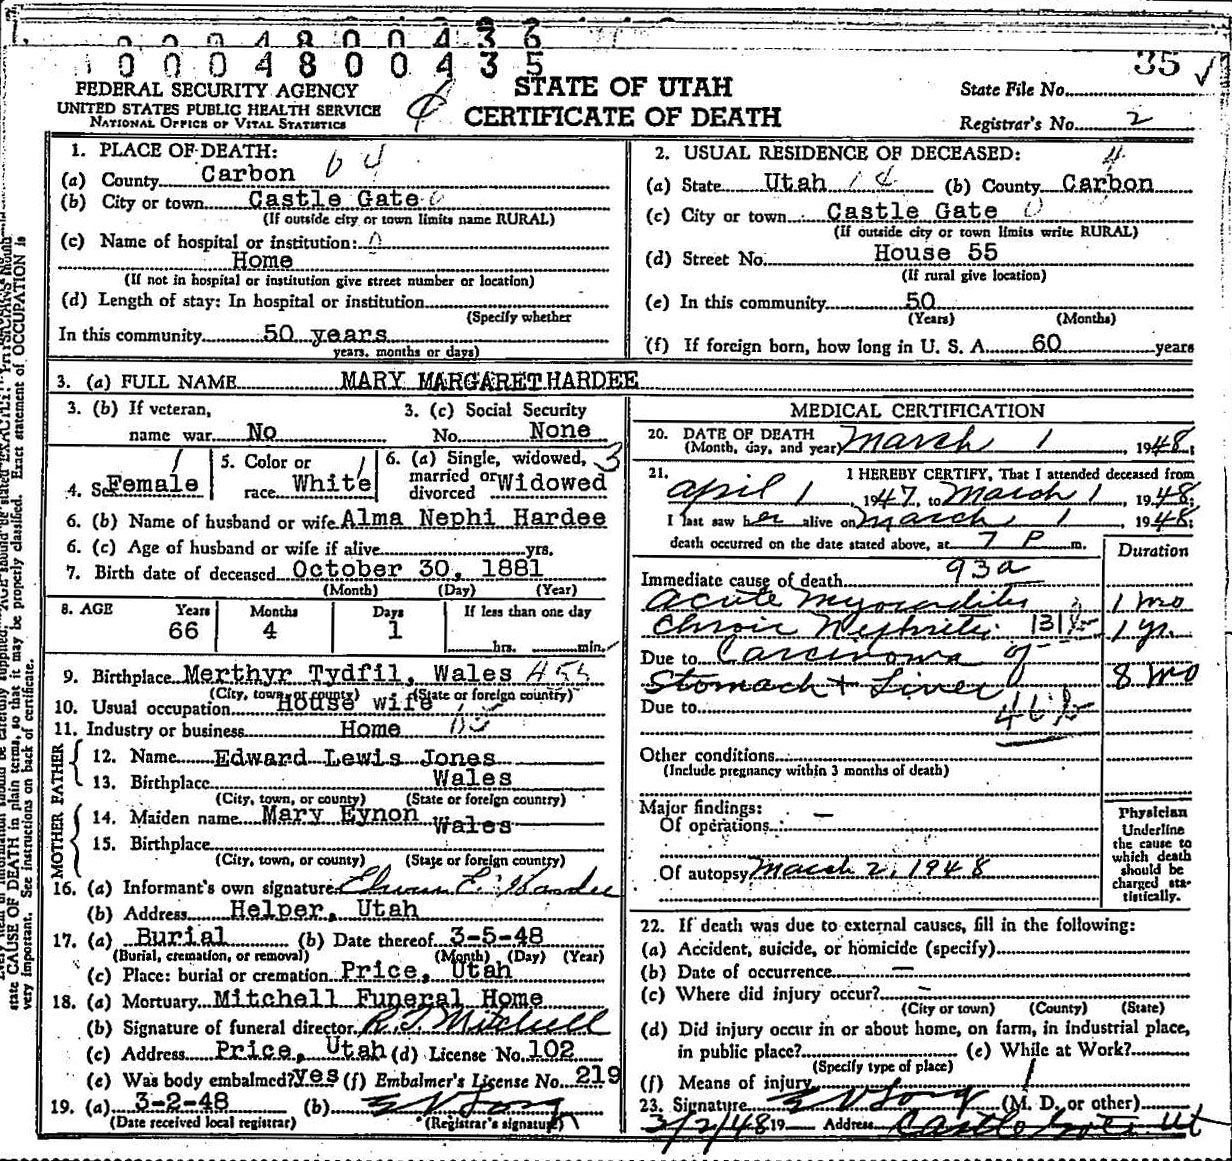 0 0 0 4 8 0 0 4 3 6
0 0 0 4 8 0 0 4 3 5
35 ✓
FEDERAL SECURITY AGENCY
UNITED STATES PUBLIC HEALTH SERVICE
NATIONAL OFFICE OF VITAL STATISTICS
STATE OF UTAH
CERTIFICATE OF DEATH
State File No.
Registrar's No. 2
1. PLACE OF DEATH:
(a) County Carbon
(b) City or town Castle Gate
(If outside city or town limits name RURAL)
(c) Name of hospital or institution:
Home
(If not in hospital or institution give street number or location)
(d) Length of stay: In hospital or institution
(Specify whether
In this community 50 years
years, months or days)
2. USUAL RESIDENCE OF DECEASED:
(a) State Utah (b) County Carbon
(c) City or town Castle Gate
(If outside city or town limits write RURAL)
(d) Street No. House 55
(If rural give location)
(e) In this community 50
(Years) (Months)
(f) If foreign born, how long in U. S. A. 60 years
3. (a) FULL NAME MARY MARGARET HARDEE
3. (b) If veteran,
name war No
3. (c) Social Security
No. None
4. Sex Female
5. Color or
race White
6. (a) Single, widowed,
married or
divorced Widowed
6. (b) Name of husband or wife Alma Nephi Hardee
6. (c) Age of husband or wife if alive yrs.
7. Birth date of deceased October 30, 1881
(Month) (Day) (Year)
8. AGE Years Months Days If less than one day
66 4 1
hrs. min.
9. Birthplace Merthyr Tydfil, Wales
(City, town, or county) (State or foreign country)
10. Usual occupation House wife
11. Industry or business Home
FATHER
12. Name Edward Lewis Jones
13. Birthplace Wales
(City, town, or county) (State or foreign country)
MOTHER
14. Maiden name Mary Eynon
15. Birthplace Wales
(City, town, or county) (State or foreign country)
16. (a) Informant's own signature Hardee
(b) Address Helper, Utah
17. (a) Burial (b) Date thereof 3-5-48
(Burial, cremation, or removal) (Month) (Day) (Year)
(c) Place: burial or cremation Price, Utah
18. (a) Mortuary Mitchell Funeral Home
(b) Signature of funeral director Mitchell
(c) Address Price, Utah (d) License No. 102
(e) Was body embalmed? yes (f) Embalmer's License No. 219
19. (a) 3-2-48 (b)
(Date received local registrar) (Registrar's signature)
MEDICAL CERTIFICATION
20. DATE OF DEATH
(Month, day, and year) March 1, 1948;
21. I HEREBY CERTIFY, That I attended deceased from
April 1 1947, to March 1 1948;
I last saw her alive on March 1, 1948;
death occurred on the date stated above, at 7 P m.
Duration
93a
Immediate cause of death
Acute Myocarditis 1 mo
Chroic Nephritis 131 1 yr.
Due to Carcinoma of
Stomach + Liver 8 mo
Due to
46
Other conditions
(Include pregnancy within 3 months of death)
Major findings:
Of operations
Of autopsy March 2, 1948
Physician
Underline
the cause to
which death
should be
charged sta-
tistically.
22. If death was due to external causes, fill in the following:
(a) Accident, suicide, or homicide (specify)
(b) Date of occurrence
(c) Where did injury occur?
(City or town) (County) (State)
(d) Did injury occur in or about home, on farm, in industrial place,
in public place? (e) While at Work?
(Specify type of place)
(f) Means of injury
23. Signature (M. D. or other)
3/2/48 19 Address Castle Gate Ut
state CAUSE OF DEATH in plain terms, so that it may be properly classified. Exact statement of OCCUPATION is
very important. See instructions on back of certificate.